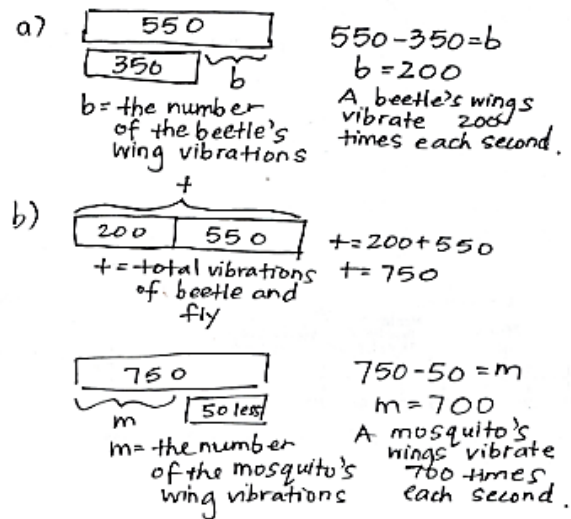 a)
550
350
b
b = the number
of the beetle's
wing vibrations
550-350=b
b = 200
A beetle's wings
vibrate 200
times each second.
b)
t
200 550
t = total vibrations
of beetle and
fly
t = 200 + 550
t = 750
750
m 50 less
m = the number
of the mosquito's
wing vibrations
750-50 = m
m = 700
A mosquito's
wings vibrate
700 times
each second.